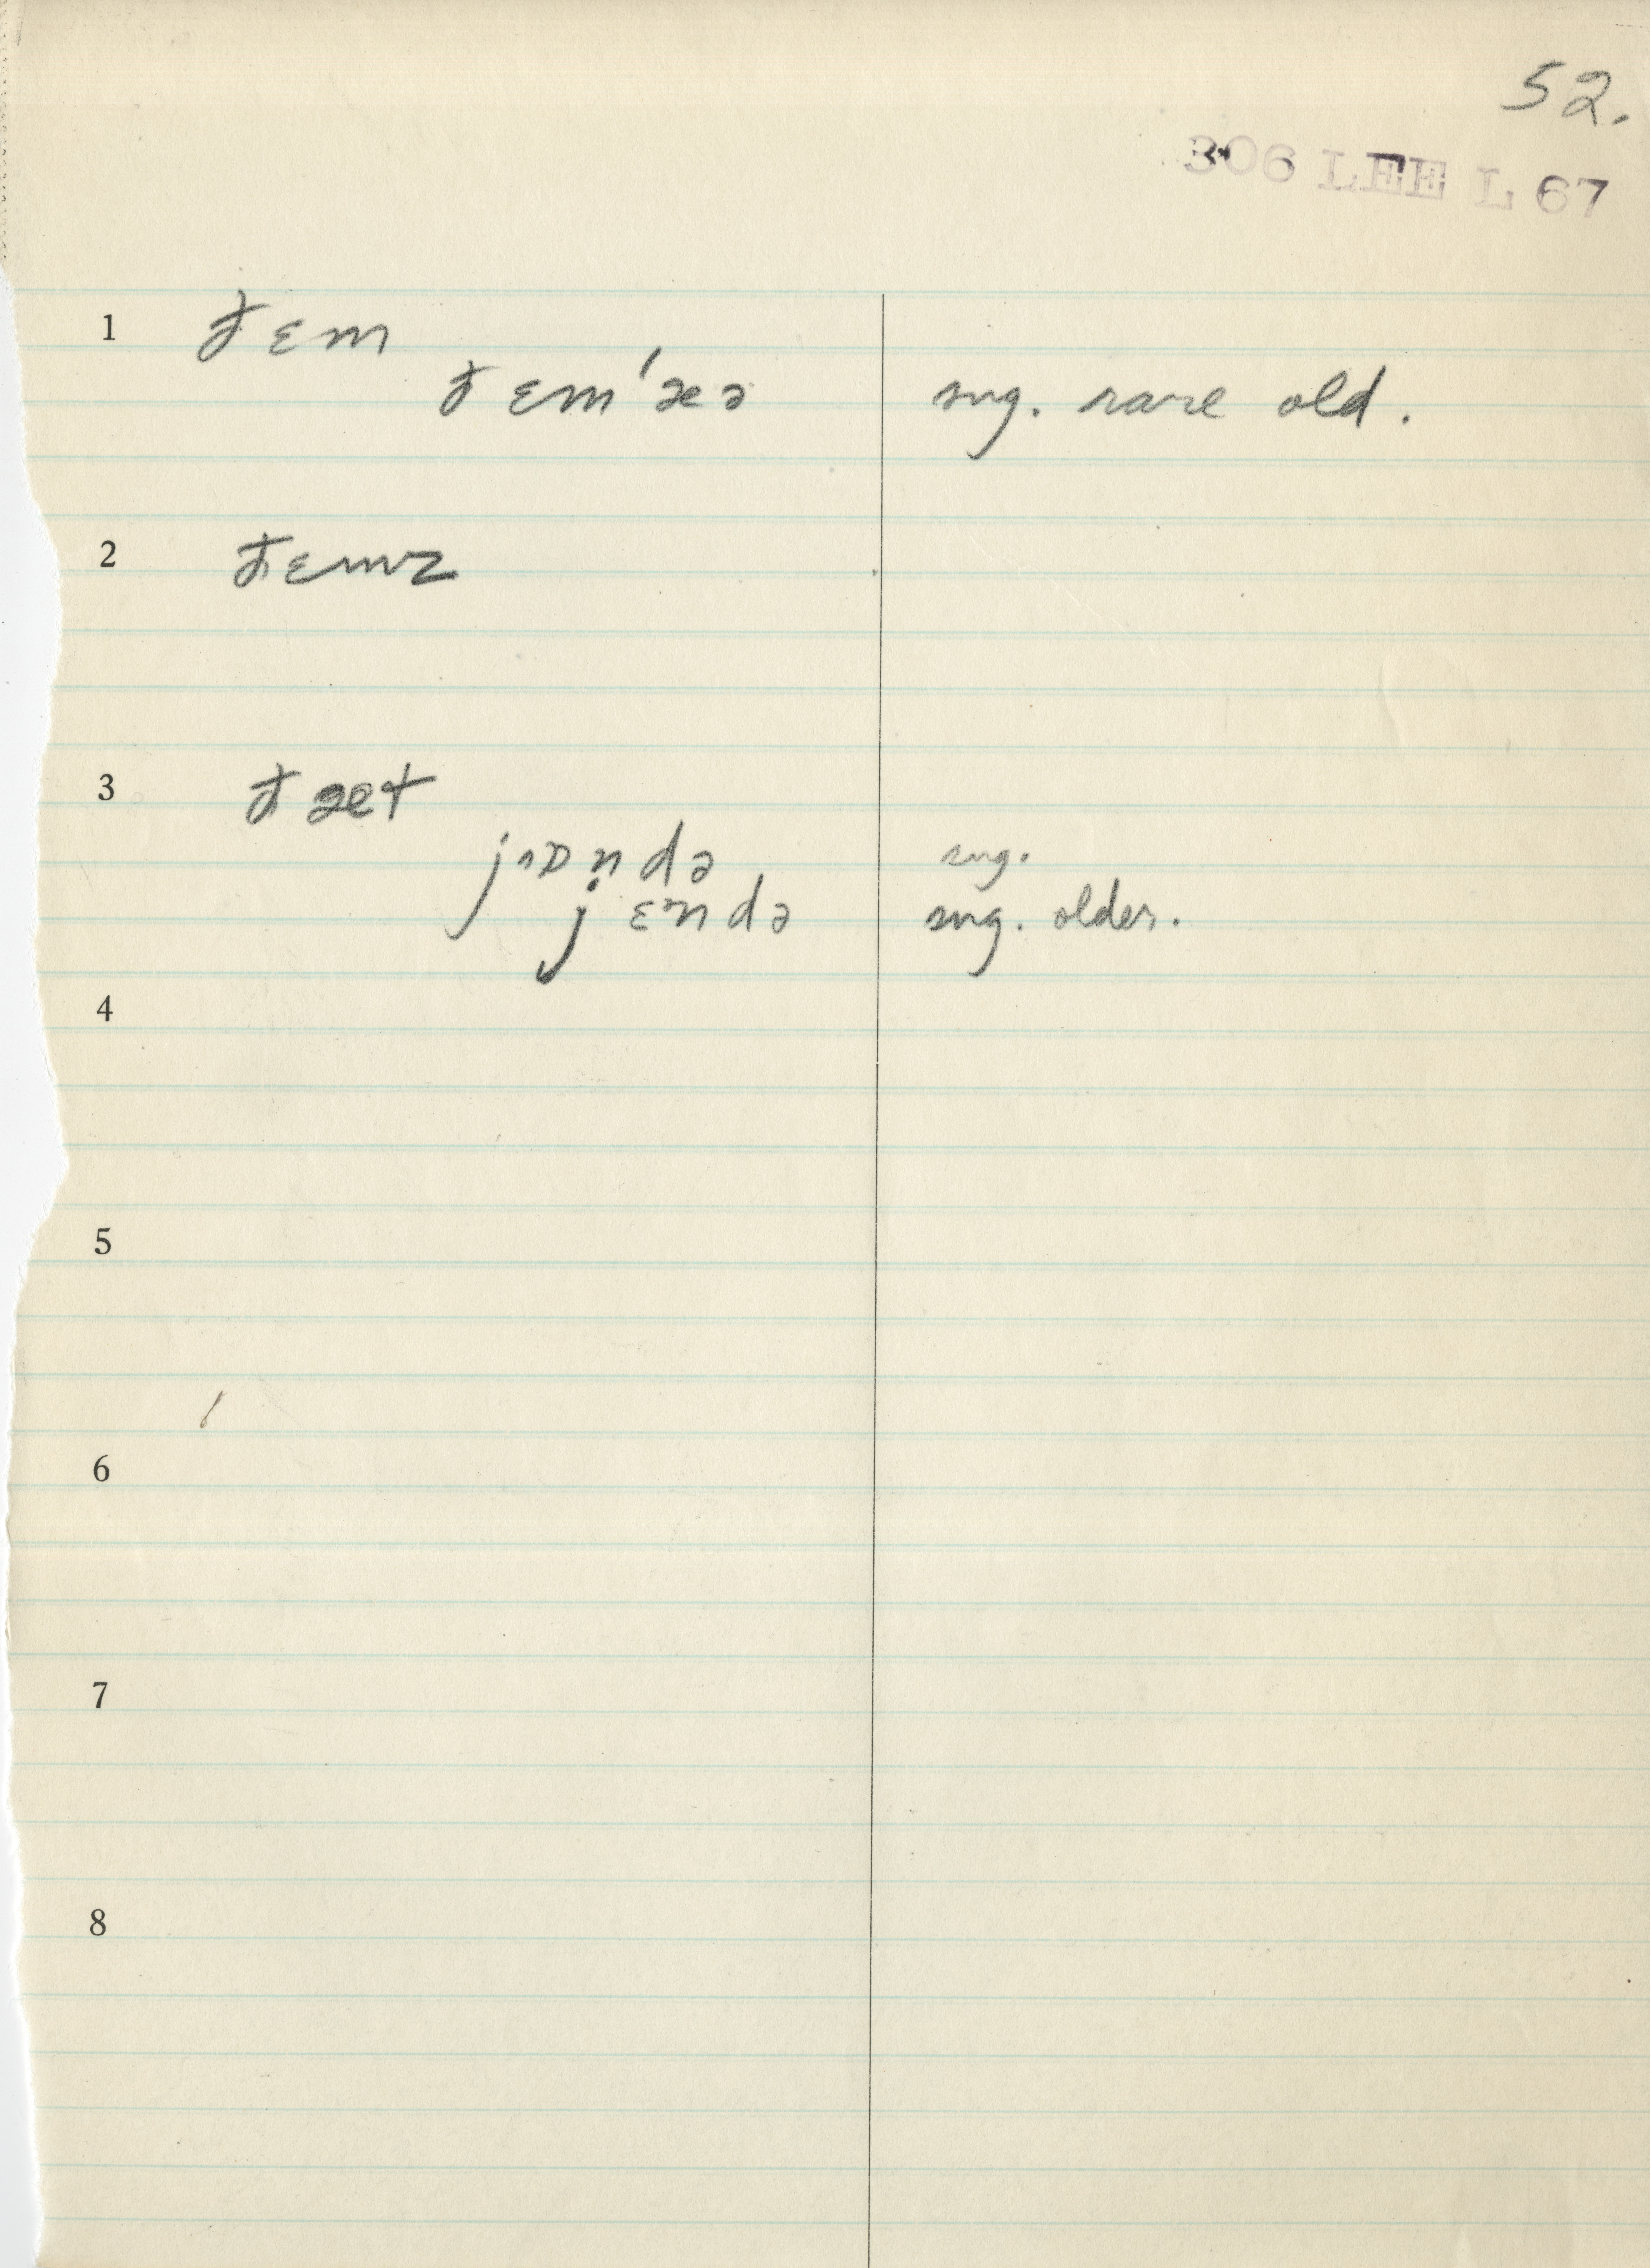 52.
306 LEE L 67
1 ɟ ɛm
ɟ ɛm'æə sug. rare old.
2 ɟɛmz
3 ɟ æt
ndə sug.
j ɛndə sug. older.
4
5
6
7
8